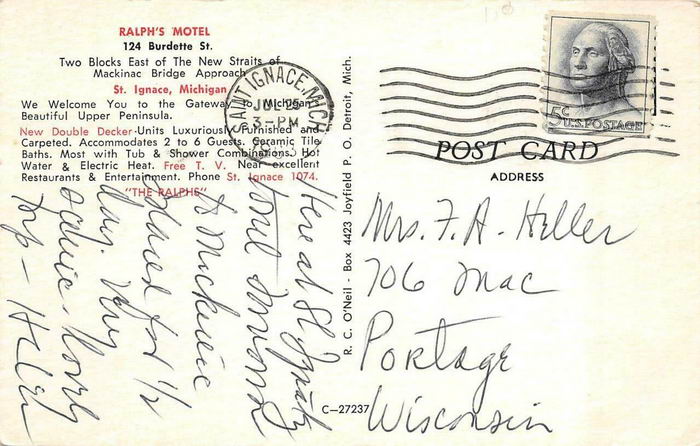 RALPH'S MOTEL
124 Burdette St.
Two Blocks East of The New Straits of
Mackinac Bridge Approach
St. Ignace, Michigan
We Welcome You to the Gateway to Michigan's
Beautiful Upper Peninsula.
New Double Decker-Units Luxuriously Furnished and
Carpeted. Accommodates 2 to 6 Guests. Ceramic Tile
Baths. Most with Tub & Shower Combinations. Hot
Water & Electric Heat. Free T. V. Near excellent
Restaurants & Entertainment. Phone St. Ignace 1074.
"THE RALPHS"
Here at St. Ignatz
to Mickinic
Island for 1/2
day. Very
scenic. Lovely
trip - Helen
R. C. O'Neil - Box 4423 Joyfield P. O. Detroit, Mich.
C-27237
SAINT IGNACE, MICH.
JUL
3-PM
5¢
U.S. POSTAGE
POST CARD
ADDRESS
Mrs. F. A. Heller
706 Mac
Portage
Wisconsin